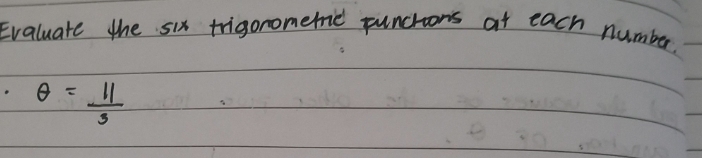 Evaluate the six trigonometric functions at each number.
. θ = 11/3